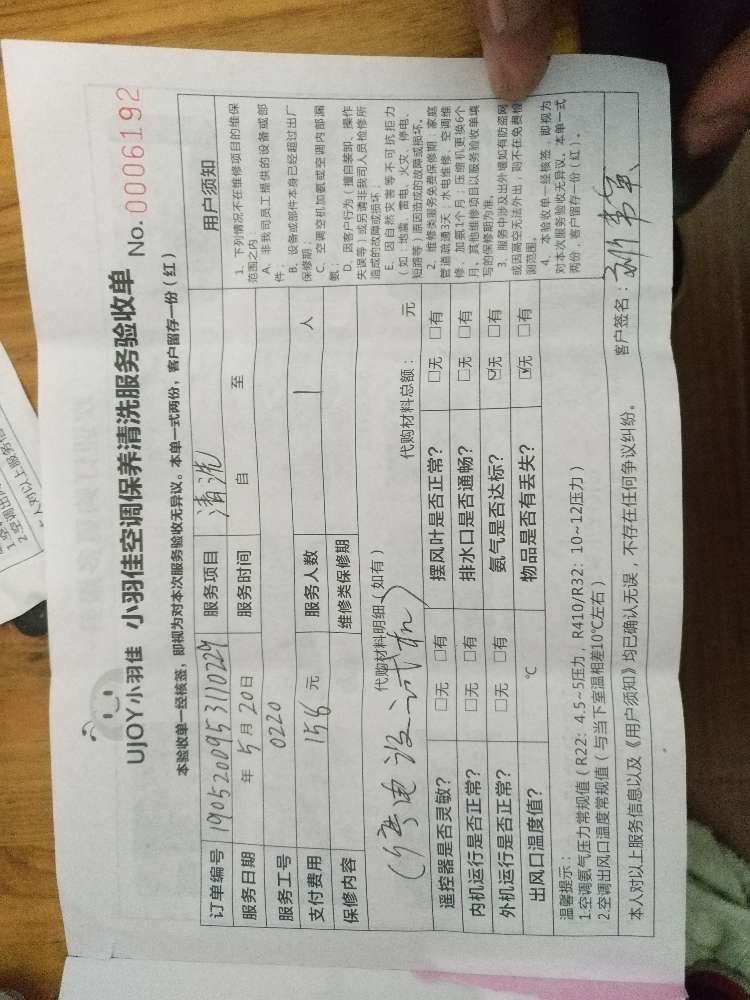 UJOY小羽佳 小羽佳空调保养清洗服务验收单 No.0006192
本验收单一经核签，即视为对本次服务验收无异议。本单一式两份，客户留存一份（红）
订单编号 1905200953110229 服务项目 清洗
服务日期 年 5月20日 服务时间 自 至
服务工号 0220
支付费用 156 元 服务人数 1 人
保修内容 维修类保修期
代购材料明细（如有） 代购材料总额： 元
电没试机）
遥控器是否灵敏？ □无 □有 摆风叶是否正常？ □无 □有
内机运行是否正常？ □无 □有 排水口是否通畅？ □无 □有
外机运行是否正常？ □无 □有 氨气是否达标？ ☑无 □有
出风口温度值？ ℃ 物品是否有丢失？ ☑无 □有
温馨提示：
1.空调氨气压力常规值（R22：4.5~5压力，R410/R32：10~12压力）
2.空调出风口温度常规值（与当下室温相差10℃左右）
本人对以上服务信息以及《用户须知》均已确认无误，不存在任何争议纠纷。 客户签名：
用户须知
1、下列情况不在维修项目的维保
范围之内
A、非我司员工提供的设备或部
件；
B、设备或部件本身已经超过出厂
保修期；
C、空调空机加氨或空调内部漏
氨；
D、因客户行为（擅自装卸、操作
失误等）或另请非我司人员检修所
造成的故障或损坏；
E、因自然灾害等不可抗拒力
（如：地震、雷电、火灾、停电、
短路等）原因造成的故障或损坏。
2、维修类服务免费保修期：家庭
管道疏通3天；水电维修、空调维
修、加氨1个月；压缩机更换6个
月，其他维修项目以服务验收单填
写的保修期为准。
3、服务中涉及出外墙如有防盗网
或因高空无法外出，则不在免费检
测范围。
4、本验收单一经核签，即视为
对本次服务验收无异议。本单一式
两份，客户留存一份（红）。